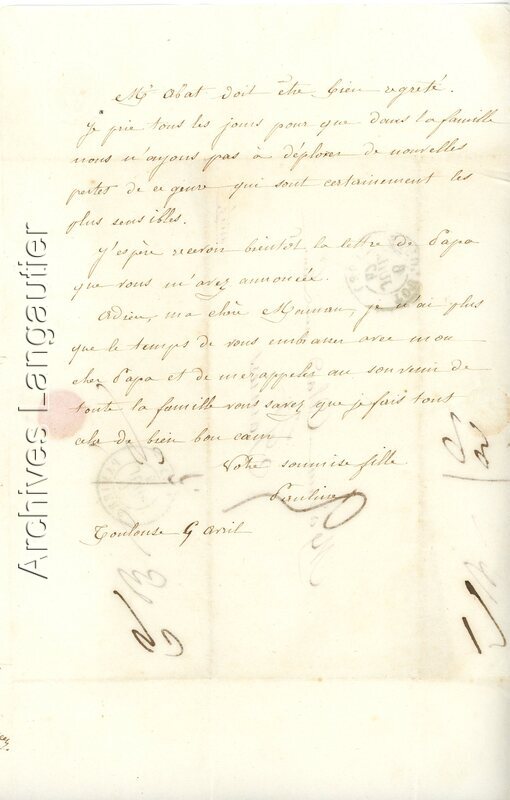 Mr Abat doit être bien regreté.
Je prie tous les jours pour que dans la famille
nous n'ayons pas à déplorer de nouvelles
pertes de ce genre qui sont certainement les
plus sensibles.
J'espère recevoir bientôt la lettre de Papa
que vous m'avez annoncée.
Adieu, ma chère Maman, je n'ai plus
que le temps de vous embrasser avec mon
cher Papa et de me rappeler au souvenir de
toute la famille vous savez que je fais tout
cela de bien bon cœur
Votre soumise fille
Pauline
Toulouse 9 avril
Archives Langautier